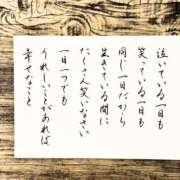 泣いている一日も
笑っている一日も
同じ一日だから
生きている間に
たくさん笑いなさい
一日一つでも
うれしいことがあれば
幸せなこと